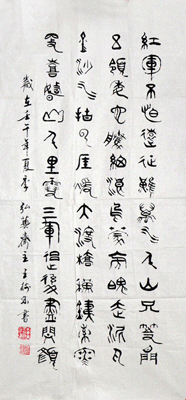 紅軍不怕遠征難萬水千山只等閑
五嶺逶迤騰細浪烏蒙磅礴走泥丸
金沙水拍雲崖暖大渡橋橫鐵索寒
更喜岷山千里雪三軍過後盡開顏
歲在壬午年夏季弘藝齋主王書